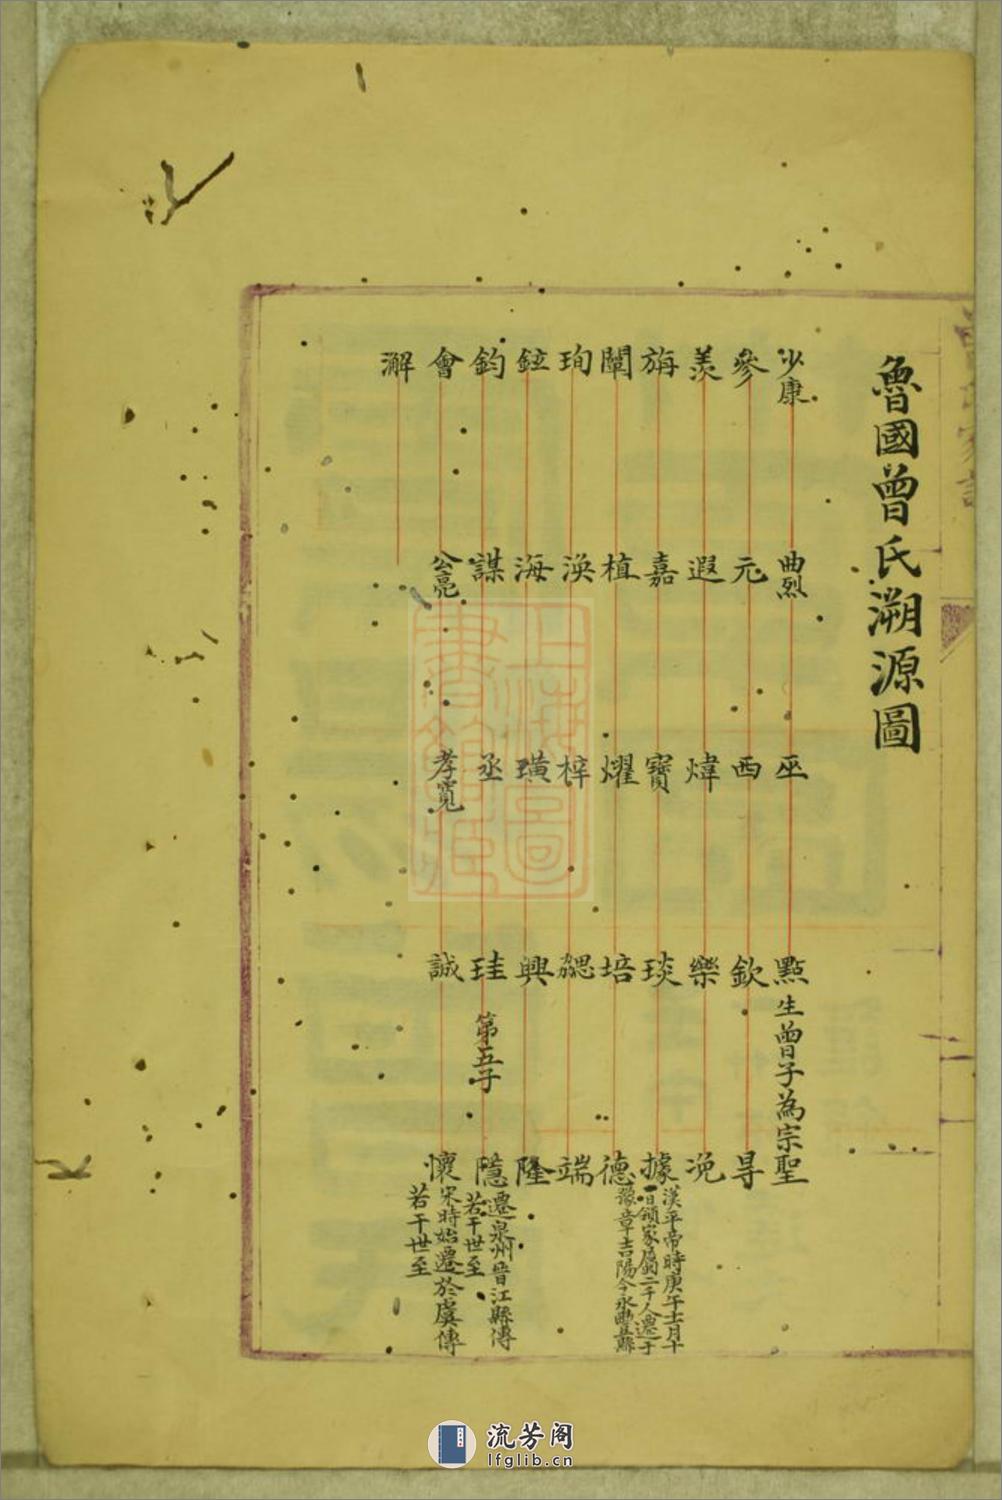 魯國曾氏溯源圖
少康 曲烈 巫 點 生曾子為宗聖
參 元 西 欽 㝵
羨 遐 煒 樂 浼
旃 嘉 寶 琰 據 漢平帝時庚午十一月十一日領家屬二千人遷于豫章吉陽今永豐縣
闡 植 燿 培 德
珣 渙 梓 勰 端
鉉 海 璜 興 隆
鈞 謀 丞 珪 第五子 隱 遷泉州晉江縣傳若干世至
會 公亮 孝寬 誠 懷 宋時始遷於虞傳若干世至
澥
上海圖書館藏
流芳阁
lfglib.cn